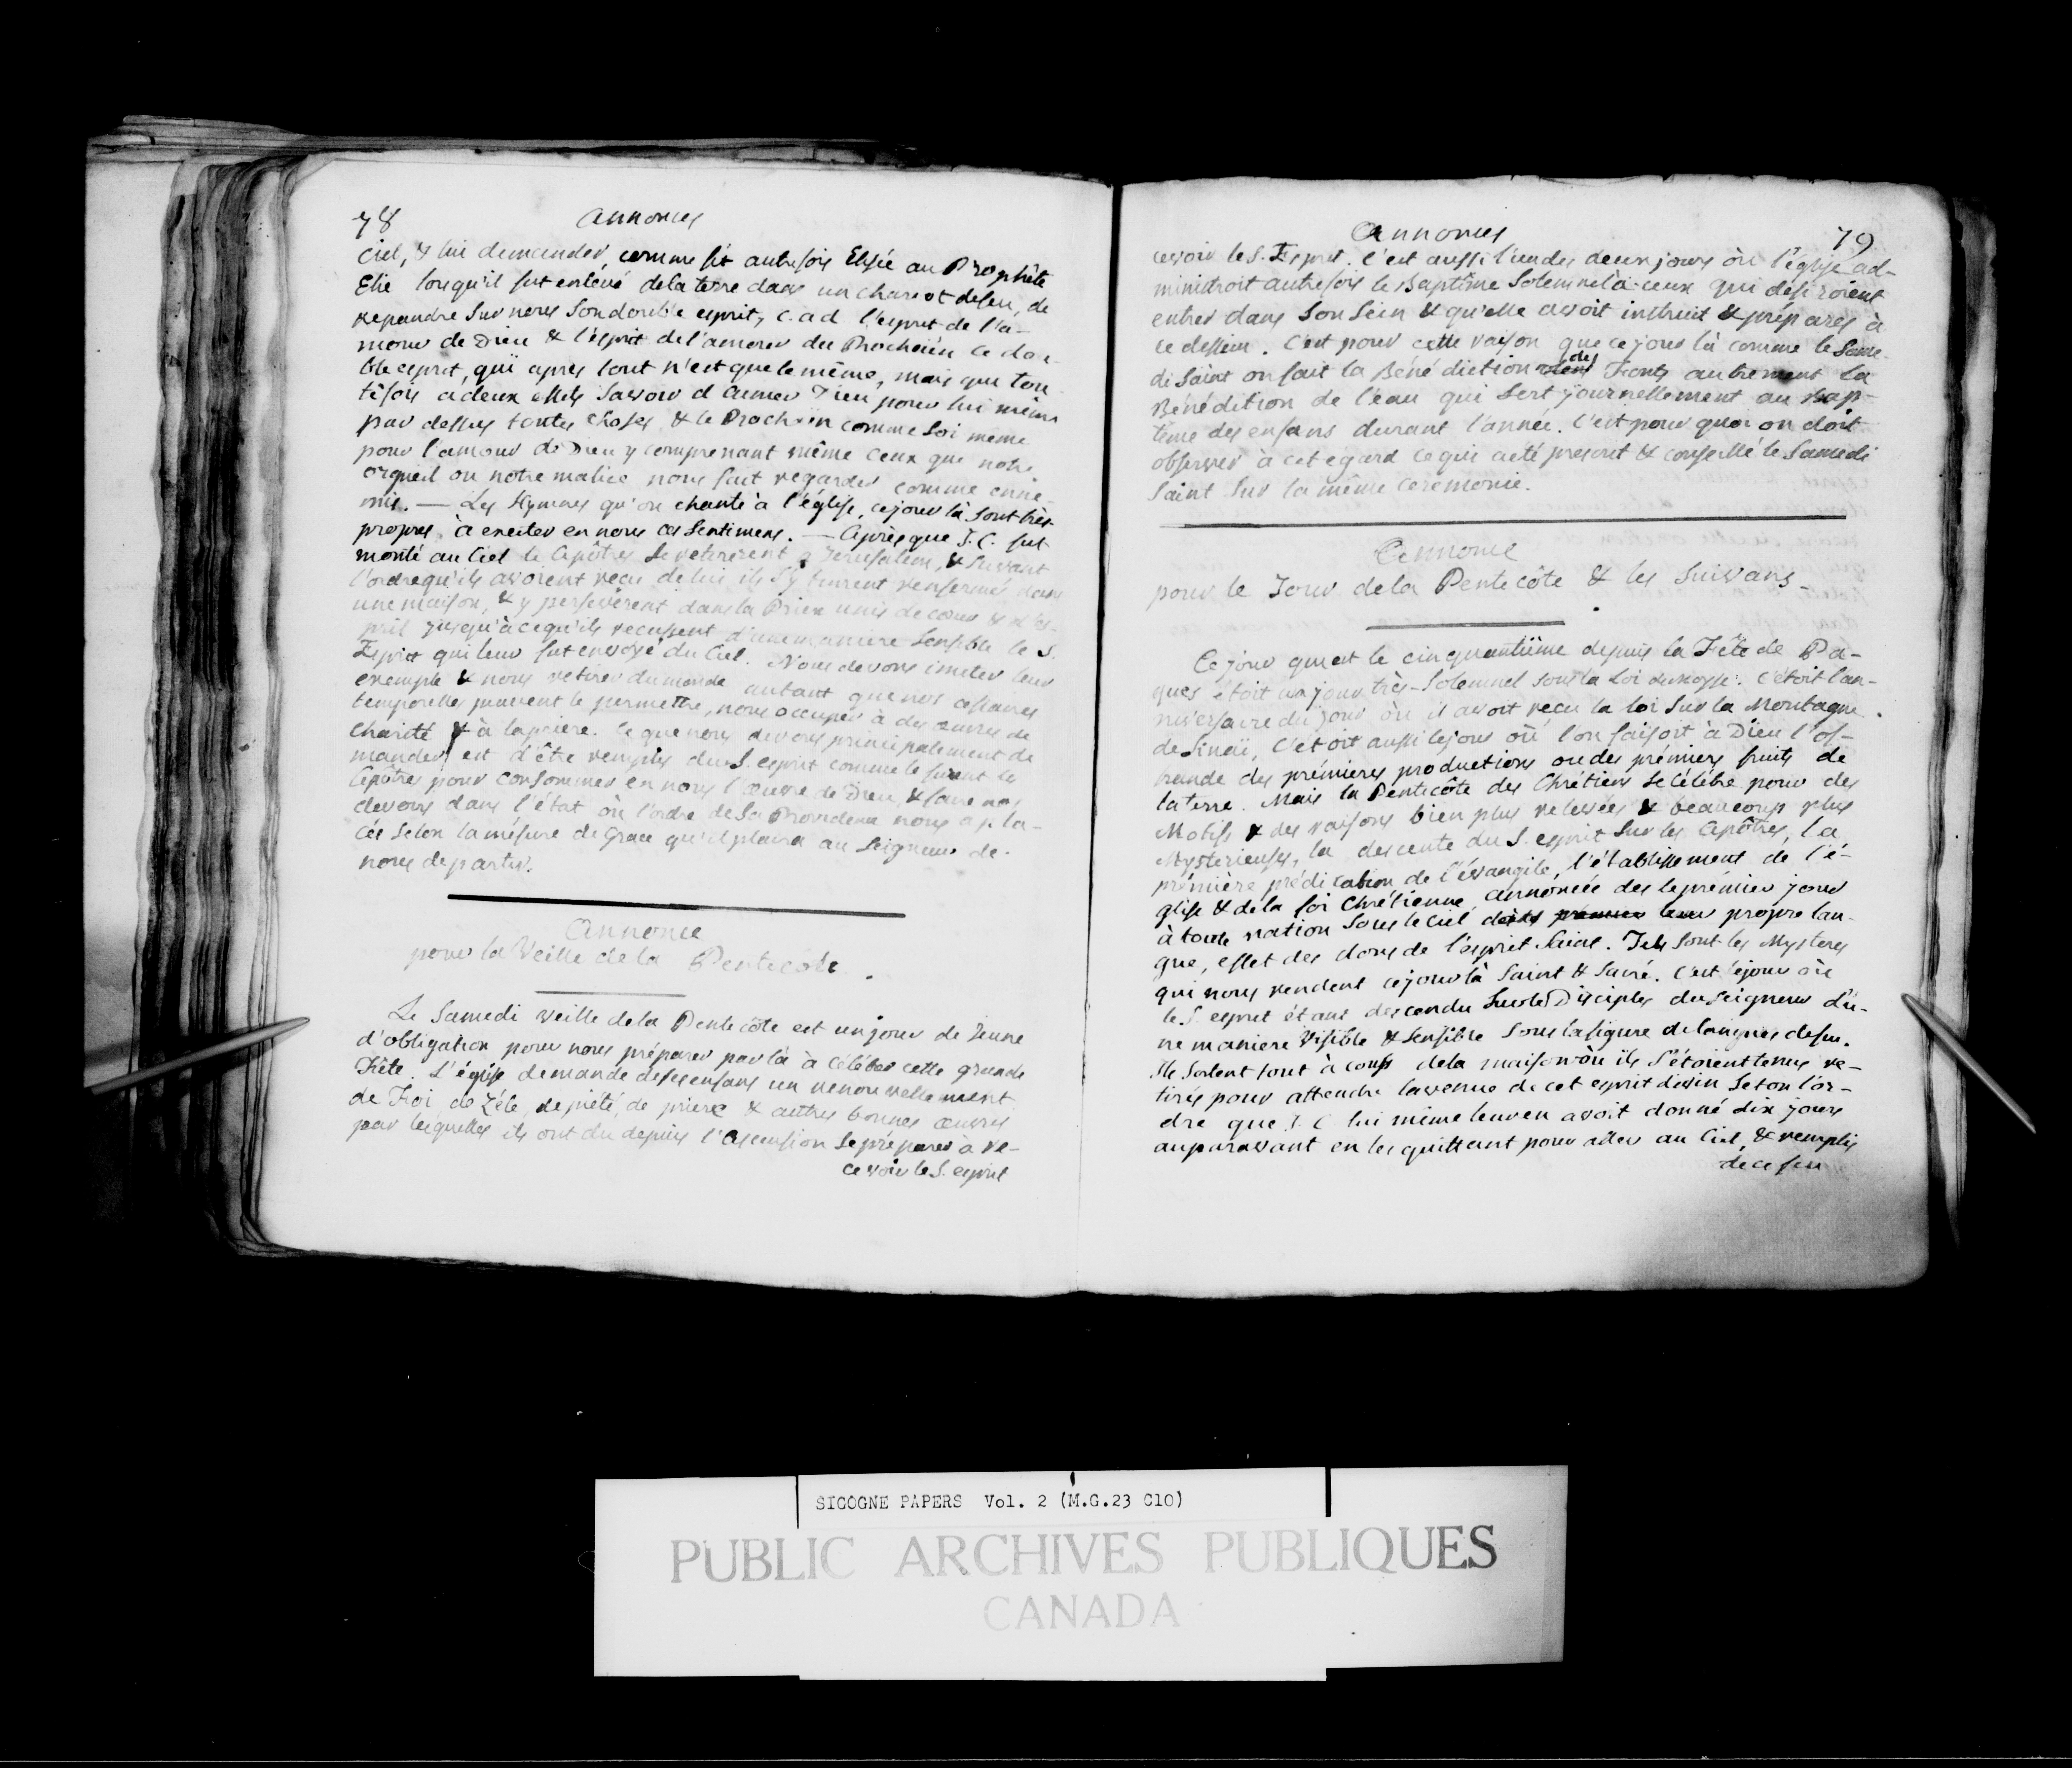 78 Annonces
Ciel, & lui demander comme fit autrefois Elisée au Prophète
Elie lorsqu'il fut enlevé de la terre dans un chariot de feu, de
repandre sur nous son double esprit, c. a d l'esprit de l'a-
mour de Dieu & l'esprit de l'amour du Prochain Ce dou-
ble esprit, qui après tout n'est que le même, mais qui tou-
tefois a deux effets savoir d'aimer Dieu pour lui même
par dessus toutes choses & le Prochain comme soi même
pour l'amour de Dieu y comprenant même ceux que notre
orgueil ou notre malice nous fait regarder comme enne-
mis. — Les Hymnes qu'on chante à l'église, ce jour là sont très
propres à exciter en nous ces sentimens. — Après que J. C. fut
monté au Ciel les Apôtres se retirerent à Jerusalem, & suivant
l'ordre qu'ils avoient reçu de lui ils s'y tinrent renfermés dans
une maison, & y perséverent dans la Priere unis de cœur & d'es-
prit jusqu'à ce qu'ils recussent d'une maniere sensible le S.
Esprit qui leur fut envoyé du Ciel. Nous devons imiter leur
exemple & nous retirer du monde autant que nos affaires
temporelles peuvent le permettre, nous occuper à des œuvres de
Charité & à la priere. Ce que nous devons principalement de
mander est d'être remplis du S. esprit comme le furent les
Apôtres pour consommer en nous l'œuvre de Dieu, & faire nos
devoirs dans l'état où l'ordre de sa Providence nous a pla-
cés selon la mésure de Grace qu'il plaira au Seigneur de
nous departir.
Annonce
pour la Veille de la Pentecote.
Le Samedi veille de la Pentecôte est un jour de Jeune
d'obligation pour nous préparer par là à Célébrer cette grande
Fête. L'église demande de ses enfans un renouvellement
de Foi, de Zéle, de piété, de priere & autres bonnes œuvres
par lesquelles ils ont du depuis l'Ascension se préparer à re-
cevoir le S. esprit
Annonces 79
cevoir le S. Esprit. C'est aussi l'un des deux jours où l'église ad-
ministroit autrefois le Baptême solemnel à ceux qui désiroient
entrer dans son sein & qu'elle avoit instruit & préparés à
ce dessein. C'est pour cette raison que ce jour là comme le Same-
di Saint on fait la Béné diction des Fonts autrement la
Bénédition de l'eau qui sert journellement au Bap-
tême des enfans durant l'année. C'est pour quoi on doit
observer à cet egard ce qui a eté prescrit & conseillé le Samedi
Saint sur la même ceremonie.
Annonce
pour le Jour de la Pentecôte & les suivans -
Ce jour qui est le cinquantième depuis la Fête de Pâ-
ques étoit un jour très-solemnel sous la Loi de Moyse. C'étoit l'an-
niversaire du jour où il avoit reçu la loi sur la Montagne
de Sinaï, C'étoit aussi le jour où l'on faisoit à Dieu l'of-
frande des prémieres productions ou des prémiers fruits de
la terre. Mais la Pentecôte des Chrétiens se célébre pour des
Motifs & des raisons bien plus relevées & beaucoup plus
Mysterieuses, la descente du S. esprit sur les Apôtres, la
prémière prédication de l'évangile, l'établissement de l'é-
glise & de la foi Chrétienne, annoncée des le prémier jour
à toute nation sous le Ciel dans premier leur propre lan-
gue, effet des dons de l'esprit Saint. Tels sont les Mysteres
qui nous rendent ce jour là Saint & Sacré. C'est le jour où
le S. esprit étant descendu sur les Disciples du Seigneur d'u-
ne maniere visible & sensible sous la figure de langues de feu.
Ils sortent tout à coup de la maison où ils s'étoient tenus re-
tirés pour attendre la venue de cet esprit divin selon l'or-
dre que J. C lui même leur en avoit donné dix jours
auparavant en les quittant pour aller au Ciel, & remplis
de ce feu
SICOGNE PAPERS Vol. 2 (M.G.23 C10)
PUBLIC ARCHIVES PUBLIQUES
CANADA